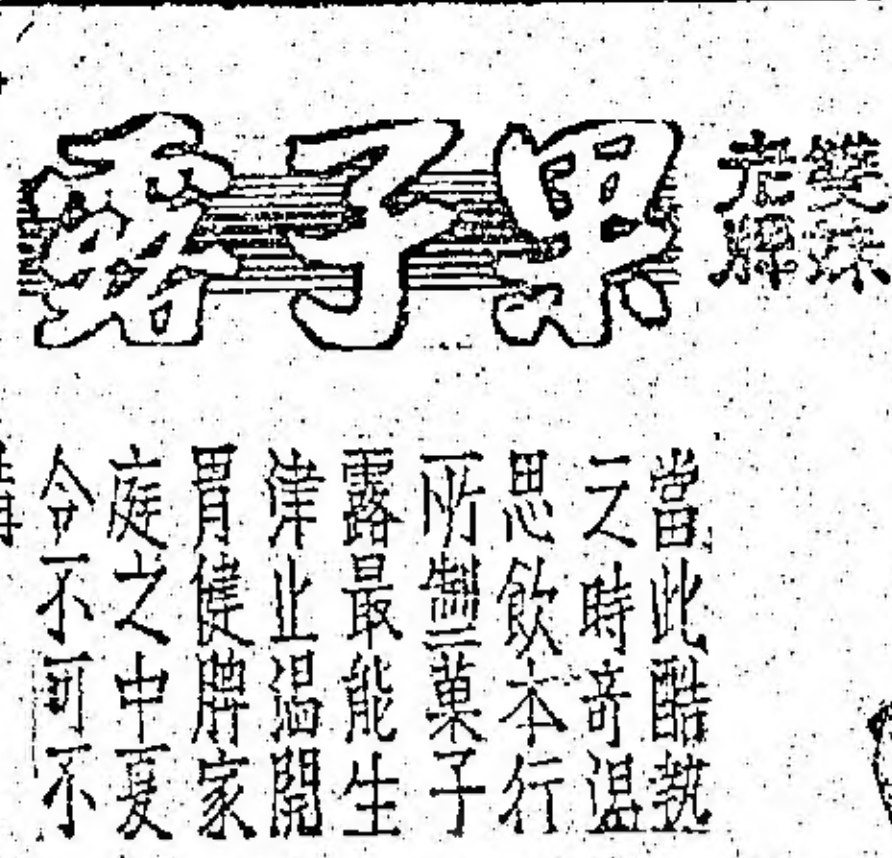 果子露
當此酷熱
之時奇渴
思飲本行
所製菓子
露最能生
津止渴開
胃健脾家
庭之中夏
令不可不